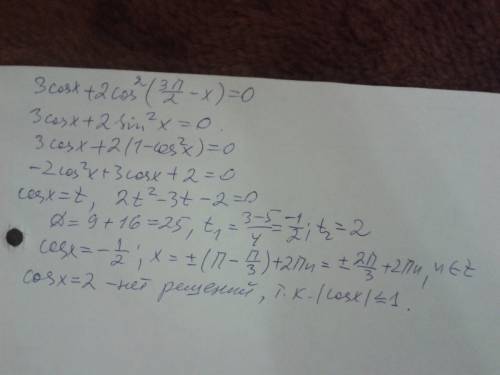 3cosx + 2cos²(3π/2 - x) = 0
3cosx + 2sin²x = 0.
3cosx + 2(1 - cos²x) = 0
-2cos²x + 3cosx + 2 = 0
cosx = t, 2t² - 3t - 2 = 0
D = 9 + 16 = 25, t₁ = (3-5)/4 = -1/2; t₂ = 2
cosx = -1/2; x = ±(π - π/3) + 2πn = ±2π/3 + 2πn, n∈Z
cosx = 2 - нет решений, т.к. |cosx| ≤ 1.